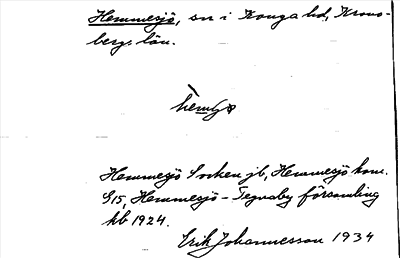 Hemmesjö, sn i Konga hd, Krono-
bergs län.
Hemmesjö Socken jb, Hemmesjö kom.
G15, Hemmesjö-Tegnaby församling
kb 1924.
Erik Johannesson 1934